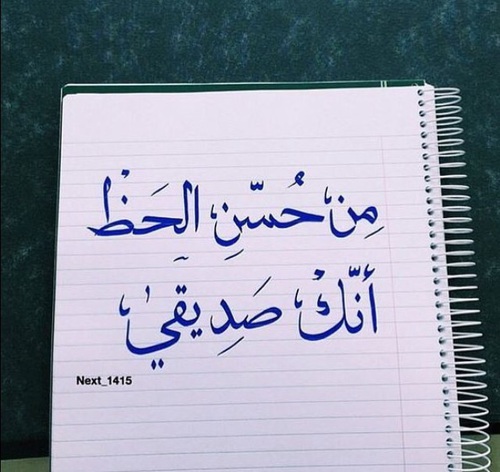 مِن حُسّنِ الحَظْ
أنّكَ صَدِيقي
Next_1415